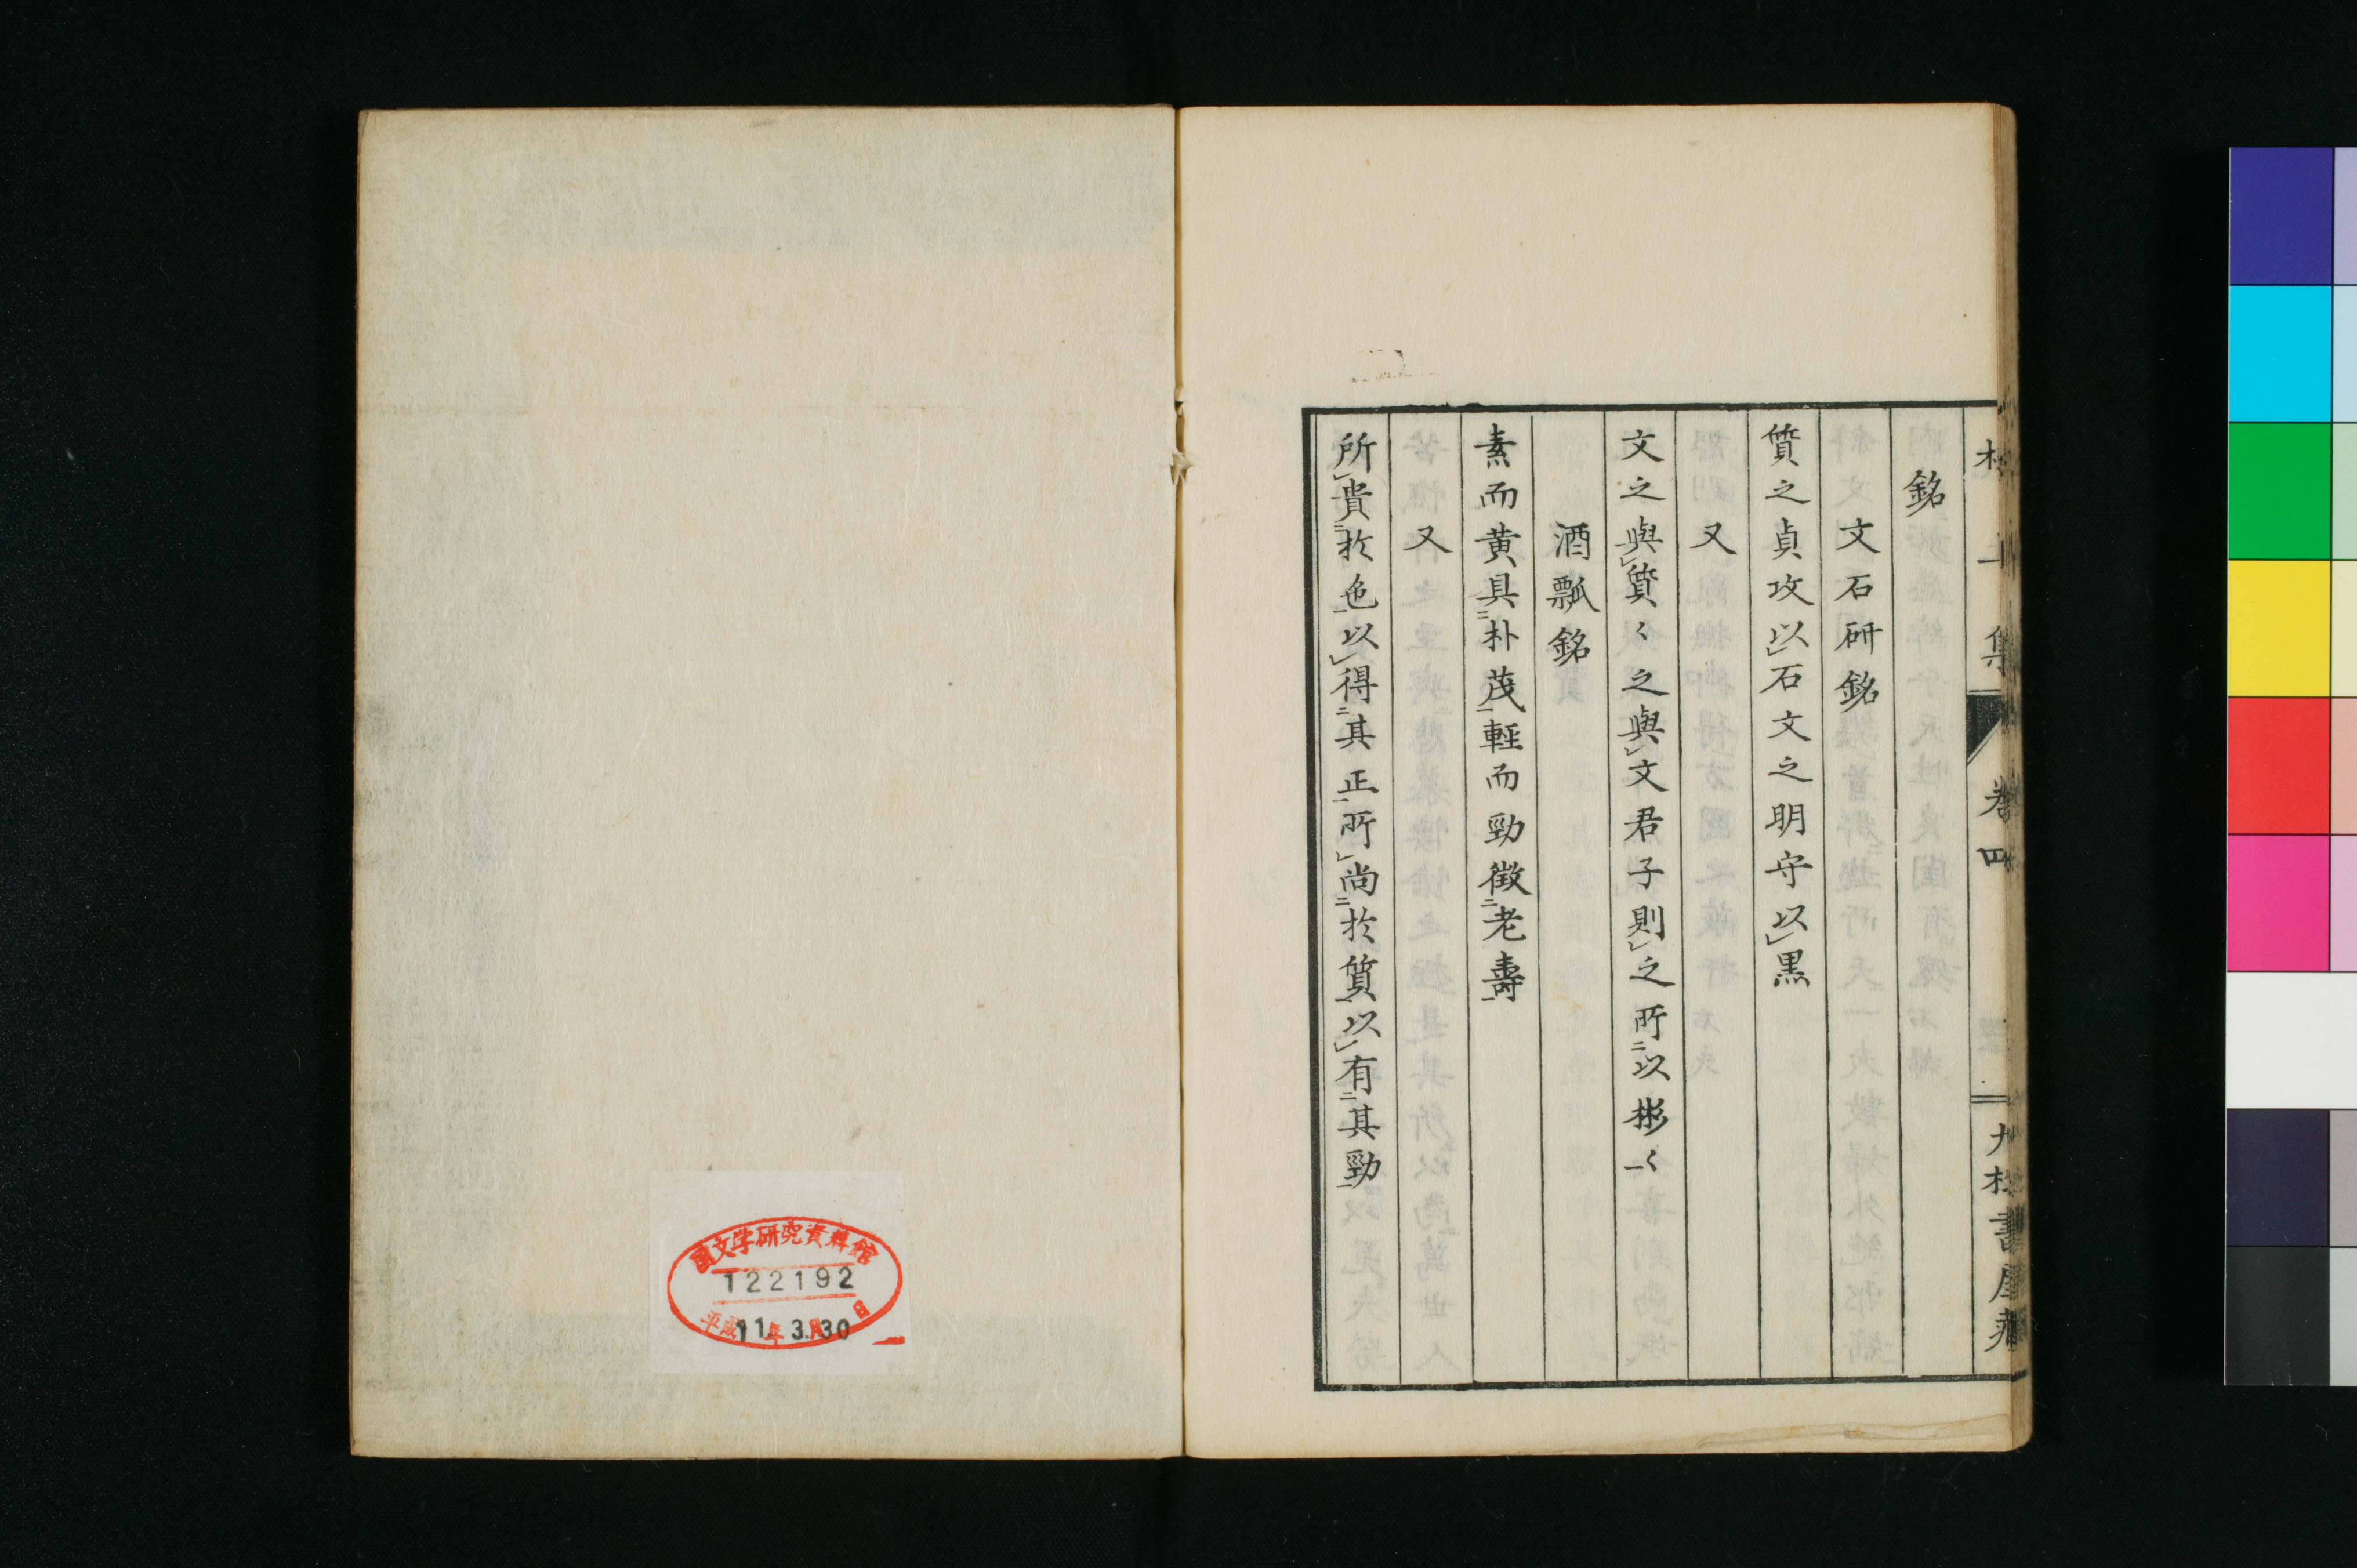 集
卷四
書屋
銘
文石研銘
質之貞攻以石文之明守以黒
又
文之與質〱之與文君子則之所以彬〱
酒瓢銘
素而黄具朴茂輕而勁徴老壽
又
所貴於色以得其正所尚於質以有其勁
國文学研究資料館
122192
平成 年 月 日
11.3.30